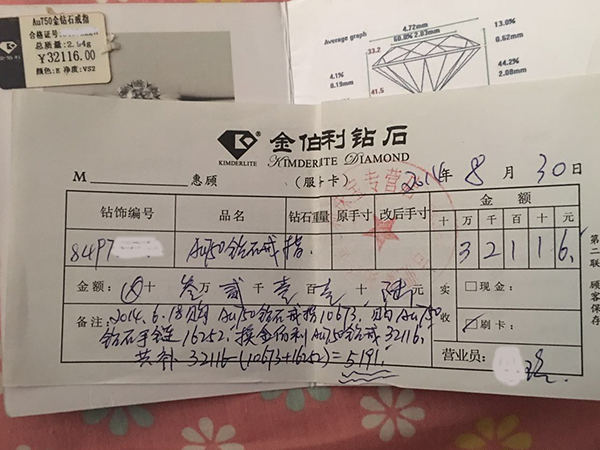 Au750金钻石戒指
合格证号:
总质量: 2.54g
¥32116.00
颜色:E 净度:VS2
金伯利
Average graph
4.72mm
60.0% 2.83mm
13.0%
0.62mm
33.2
4.1%
0.19mm
41.5
44.2%
2.08mm
KIMDERLITE
金伯利钻石
KIMDERLITE DIAMOND
M 惠顾
(服务卡)
2014年 8 月 30 日
钻饰编号 品名 钻石重量 原手寸 改后手寸 金额
十 万 千 百 十 元
84P7 Au750钻石戒指 3 2 1 1 6.
金额: ⊗ 十 叁 万 贰 千 壹 百 十 陆 元
实收
□现金:
☑刷卡:
备注: 2014.6.18购Au750钻石戒指10673. 购Au750
钻石手链16252. 换金伯利Au750钻戒32116.
共补 32116-(10673+16252)=5191.
营业员:
第二联 顾客保存